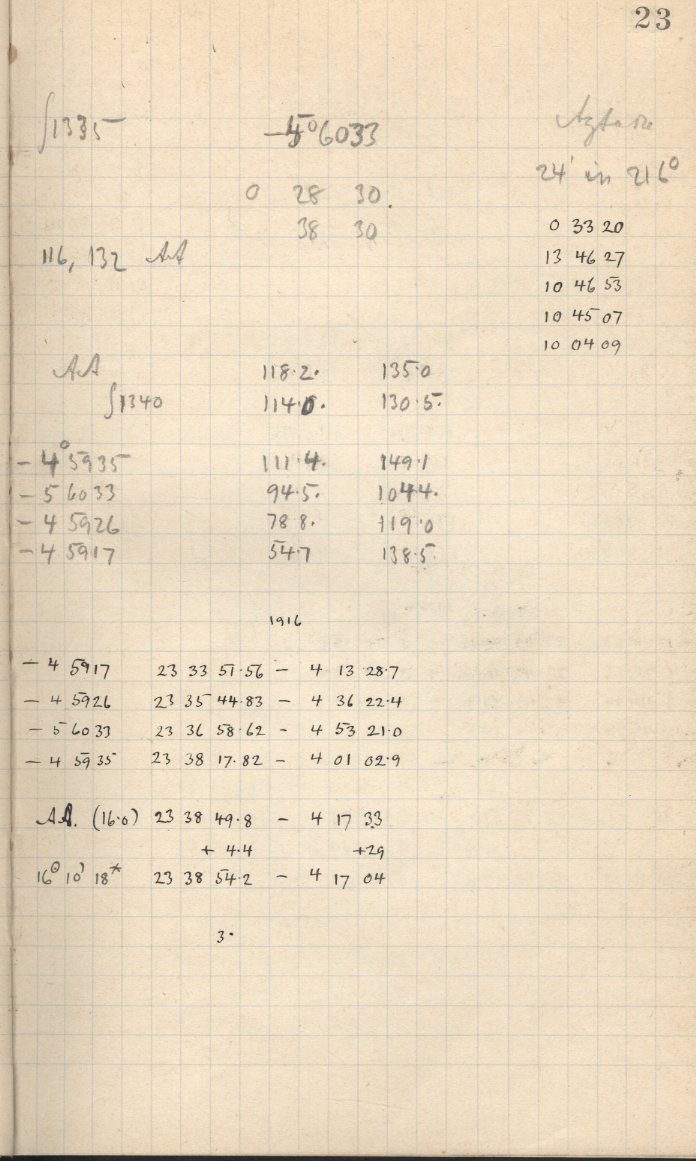 23
∫1335 -5°6033
24' in 216°
0 28 30.
38 30
116, 132 AA
0 33 20
13 46 27
10 46 53
10 45 07
10 04 09
AA 118.2. 135.0
∫1340 114.0. 130.5.
- 4° 5935 111.4. 149.1
- 5 6033 94.5. 104.4.
- 4 5926 78 8. 119.0
- 4 5917 54.7 138.5
1916
- 4 5917 23 33 51.56 - 4 13 28.7
- 4 5926 23 35 44.83 - 4 36 22.4
- 5 6033 23 36 58.62 - 4 53 21.0
- 4 5935 23 38 17.82 - 4 01 02.9
AA. (16.0) 23 38 49.8 - 4 17 33
+ 4.4 +29
23 38 54.2 - 4 17 04
3.